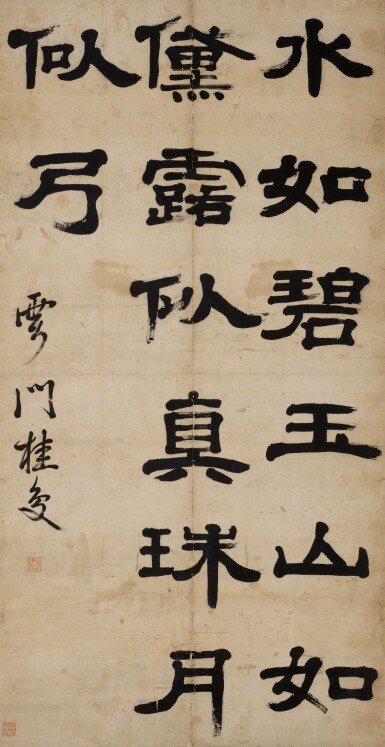 水如碧玉山如
黛露似真珠月
似弓
雩門桂馥